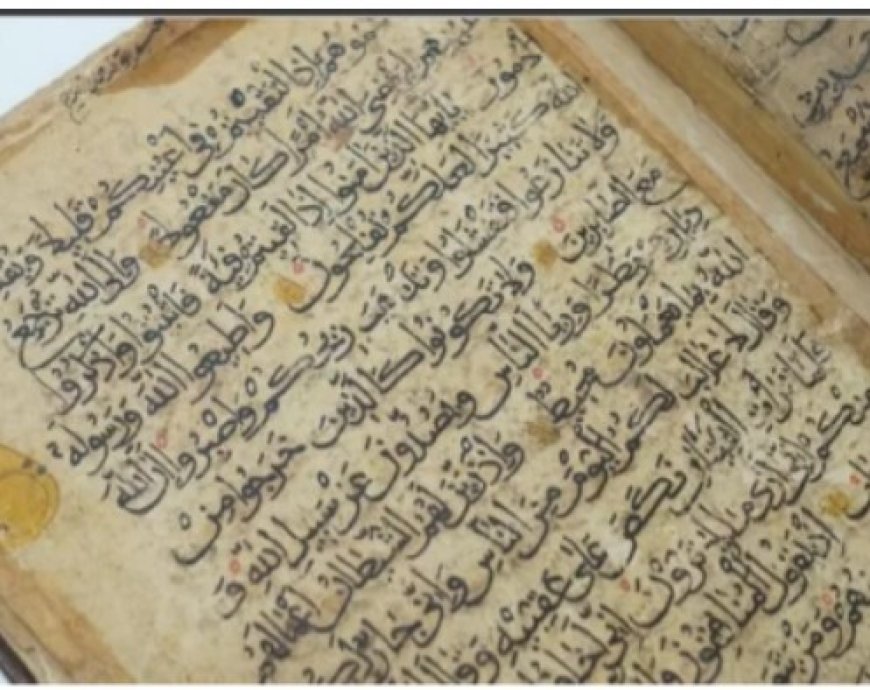 موهم إذ التقيتم في أعينكم قليلا ويقلـ
ـعينهم ليقضي الله أمرا كان مفعولا وإلى الله ترجع
الأمور يا أيها الذين آمنوا إذا لقيتم فئة فاثبتوا واذكروا
الله كثيرا لعلكم تفلحون وأطيعوا الله ورسوله
ولا تنازعوا فتفشلوا وتذهب ريحكم واصبروا إن الله
مع الصابرين ولا تكونوا كالذين خرجوا من
ديارهم بطرا ورئاء الناس ويصدون عن سبيل الله و
الله بما يعملون محيط وإذ زين لهم الشيطان أعمالهم
وقال لا غالب لكم اليوم من الناس وإني جار لكم
فلما تراءت الفئتان نكص على عقبيه وقال
منكم إني أرى ما لا ترون إني أخاف
إذ يقول المنافقون
ومن